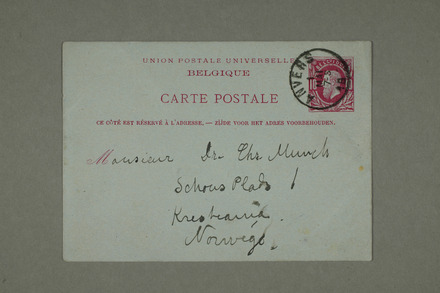 UNION POSTALE UNIVERSELLE
BELGIQUE
CARTE POSTALE
ANVERS
CE CÔTÉ EST RÉSERVÉ À L'ADRESSE. — ZIJDE VOOR HET ADRES VOORBEHOUDEN.
Monsieur Dr. Chr. Munch
Schous Plads 1
Kristiania.
Norwège